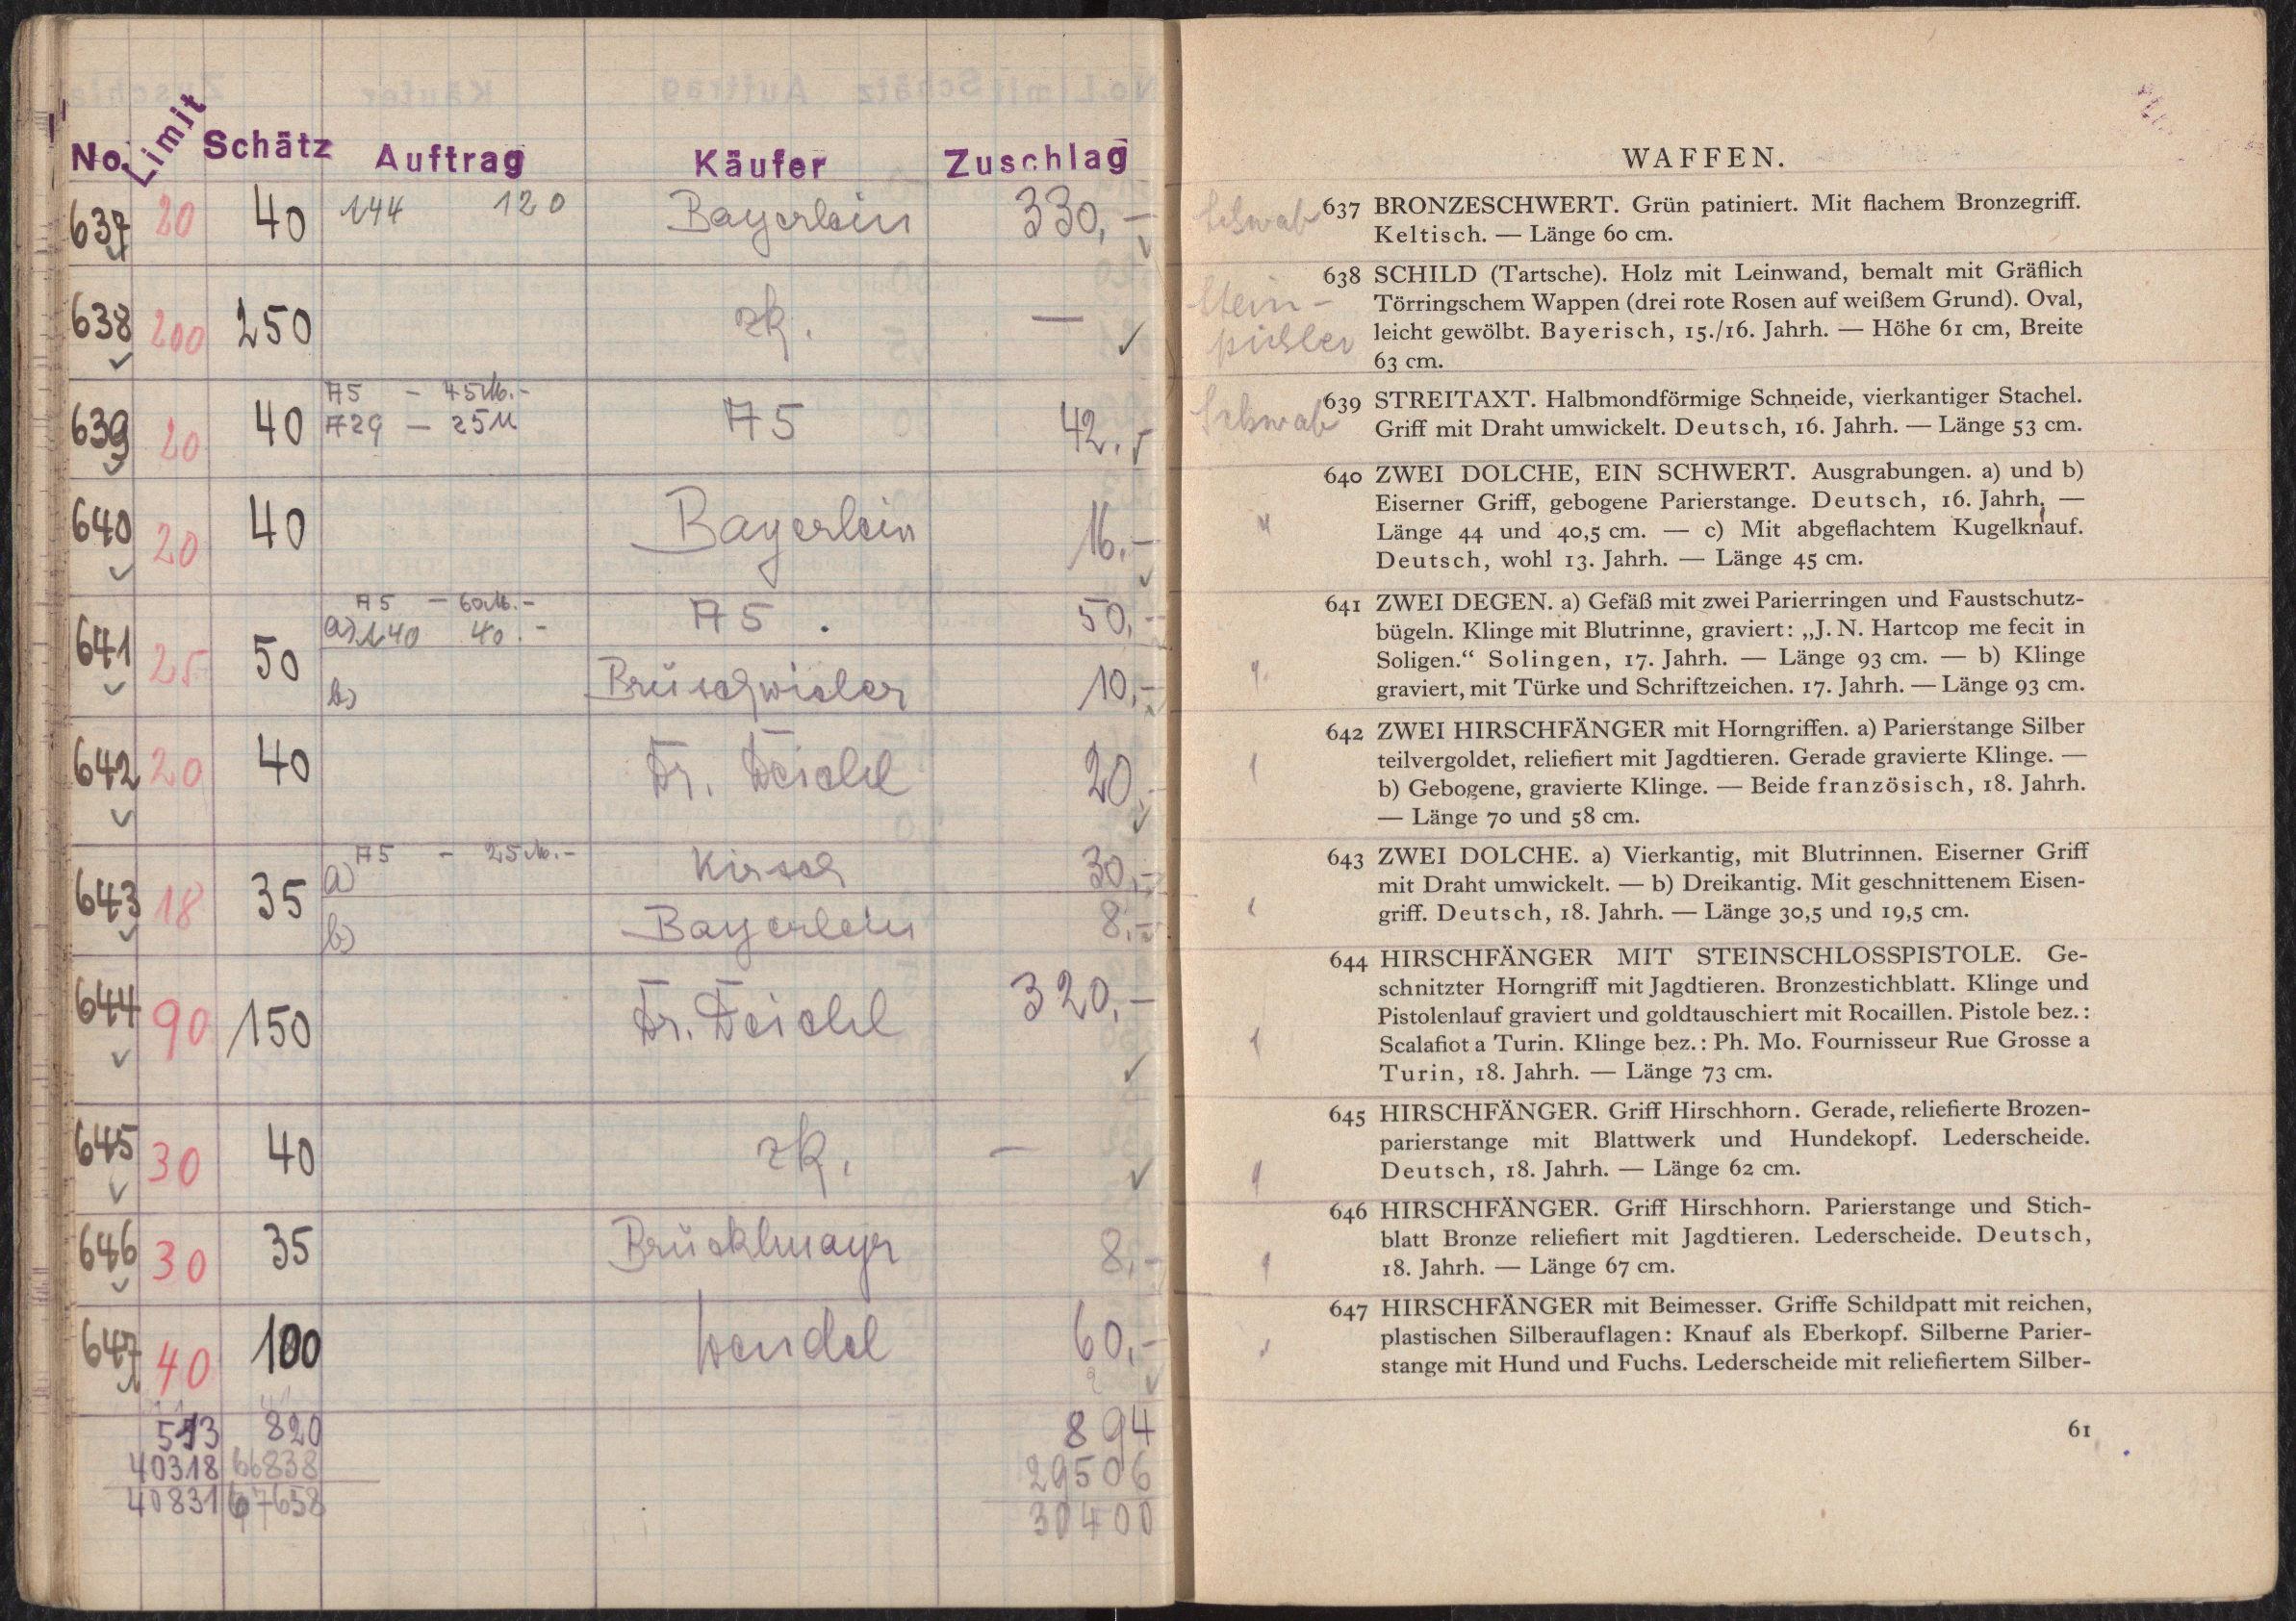 No. Limit Schätz Auftrag Käufer Zuschlag
637 20 40 144 120 Bayerlein 330,-
638 200 250 zk. —
639 20 40 A5 - 45 M.- A5 42.-
A29 - 25 M
640 20 40 Bayerlein 16.-
641 25 50 A5 - 60 M.- A5. 50,-
a) 140 40.-
b) Brüschwieler 10,-
642 20 40 Dr. Deichl 20,-
643 18 35 a) A5 - 25 M.- Kirsch 30,-
b) Bayerlein 8,-
644 90 150 Dr. Deichl 320,-
645 30 40 zk. —
646 30 35 Brücklmayr 8,-
647 40 100 Wendel 60,-
513 820 894
40318 66838 29506
40831 67658 30400
WAFFEN.
Schwab
637 BRONZESCHWERT. Grün patiniert. Mit flachem Bronzegriff.
Keltisch. — Länge 60 cm.
Stein-
pichler
638 SCHILD (Tartsche). Holz mit Leinwand, bemalt mit Gräflich
Törringschem Wappen (drei rote Rosen auf weißem Grund). Oval,
leicht gewölbt. Bayerisch, 15./16. Jahrh. — Höhe 61 cm, Breite
63 cm.
Schwab
639 STREITAXT. Halbmondförmige Schneide, vierkantiger Stachel.
Griff mit Draht umwickelt. Deutsch, 16. Jahrh. — Länge 53 cm.
640 ZWEI DOLCHE, EIN SCHWERT. Ausgrabungen. a) und b)
Eiserner Griff, gebogene Parierstange. Deutsch, 16. Jahrh. —
Länge 44 und 40,5 cm. — c) Mit abgeflachtem Kugelknauf.
Deutsch, wohl 13. Jahrh. — Länge 45 cm.
641 ZWEI DEGEN. a) Gefäß mit zwei Parierringen und Faustschutz-
bügeln. Klinge mit Blutrinne, graviert: „J. N. Hartcop me fecit in
Soligen.“ Solingen, 17. Jahrh. — Länge 93 cm. — b) Klinge
graviert, mit Türke und Schriftzeichen. 17. Jahrh. — Länge 93 cm.
642 ZWEI HIRSCHFÄNGER mit Horngriffen. a) Parierstange Silber
teilvergoldet, reliefiert mit Jagdtieren. Gerade gravierte Klinge. —
b) Gebogene, gravierte Klinge. — Beide französisch, 18. Jahrh.
— Länge 70 und 58 cm.
643 ZWEI DOLCHE. a) Vierkantig, mit Blutrinnen. Eiserner Griff
mit Draht umwickelt. — b) Dreikantig. Mit geschnittenem Eisen-
griff. Deutsch, 18. Jahrh. — Länge 30,5 und 19,5 cm.
644 HIRSCHFÄNGER MIT STEINSCHLOSSPISTOLE. Ge-
schnitzter Horngriff mit Jagdtieren. Bronzestichblatt. Klinge und
Pistolenlauf graviert und goldtauschiert mit Rocaillen. Pistole bez.:
Scalafiot a Turin. Klinge bez.: Ph. Mo. Fournisseur Rue Grosse a
Turin, 18. Jahrh. — Länge 73 cm.
645 HIRSCHFÄNGER. Griff Hirschhorn. Gerade, reliefierte Brozen-
parierstange mit Blattwerk und Hundekopf. Lederscheide.
Deutsch, 18. Jahrh. — Länge 62 cm.
646 HIRSCHFÄNGER. Griff Hirschhorn. Parierstange und Stich-
blatt Bronze reliefiert mit Jagdtieren. Lederscheide. Deutsch,
18. Jahrh. — Länge 67 cm.
647 HIRSCHFÄNGER mit Beimesser. Griffe Schildpatt mit reichen,
plastischen Silberauflagen: Knauf als Eberkopf. Silberne Parier-
stange mit Hund und Fuchs. Lederscheide mit reliefiertem Silber-
61